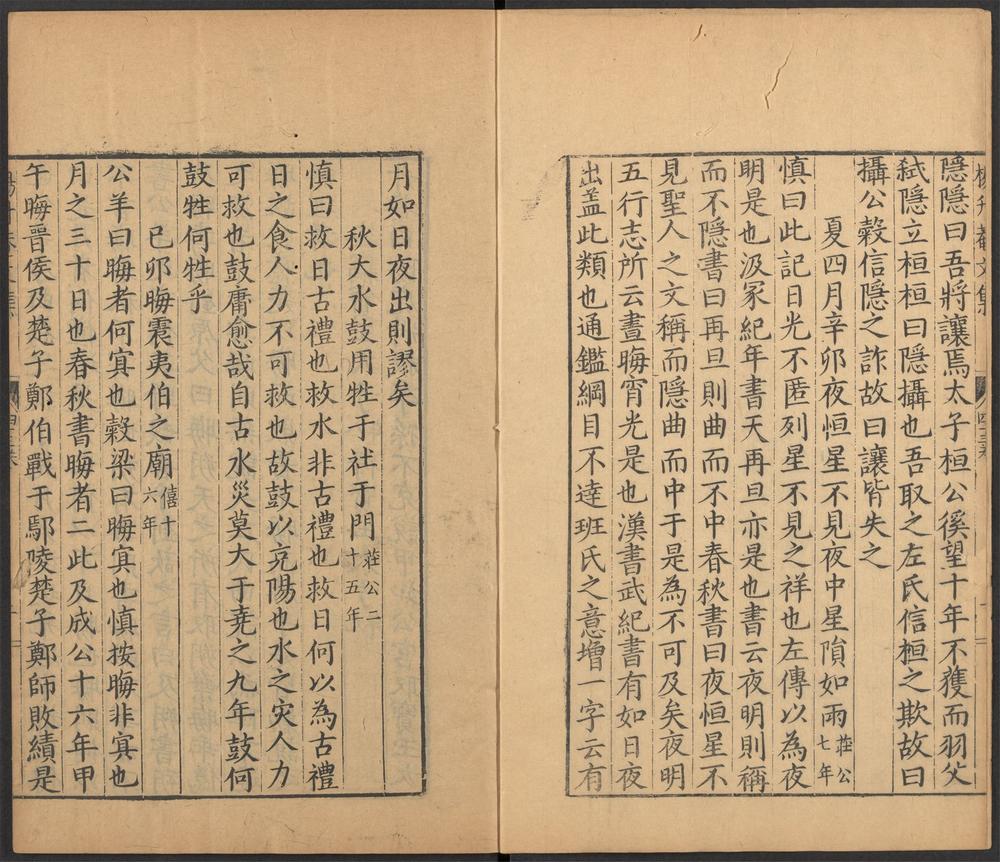 隱隱曰吾將讓焉太子桓公徯望十年不獲而羽父
弑隱立桓桓曰隱攝也吾取之左氏信桓之欺故曰
攝公穀信隱之詐故曰讓皆失之
夏四月辛卯夜恒星不見夜中星隕如雨莊公七年
慎曰此記日光不匿列星不見之祥也左傳以為夜
明是也汲冢紀年書天再旦亦是也書云夜明則稱
而不隱書曰再旦則曲而不中春秋書曰夜恒星不
見聖人之文稱而隱曲而中于是為不可及矣夜明
五行志所云晝晦宵光是也漢書武紀書有如日夜
出盖此類也通鑑綱目不逹班氏之意增一字云有
月如日夜出則謬矣
秋大水鼓用牲于社于門莊公二十五年
慎曰救日古禮也救水非古禮也救日何以為古禮
日之食人力不可救也故鼓以充陽也水之灾人力
可救也鼓庸愈哉自古水災莫大于堯之九年鼓何
鼓牲何牲乎
己卯晦震夷伯之廟僖十六年
公羊曰晦者何冥也穀梁曰晦冥也慎按晦非冥也
月之三十日也春秋書晦者二此及成公十六年甲
午晦晉侯及楚子鄭伯戰于鄢陵楚子鄭師敗績是